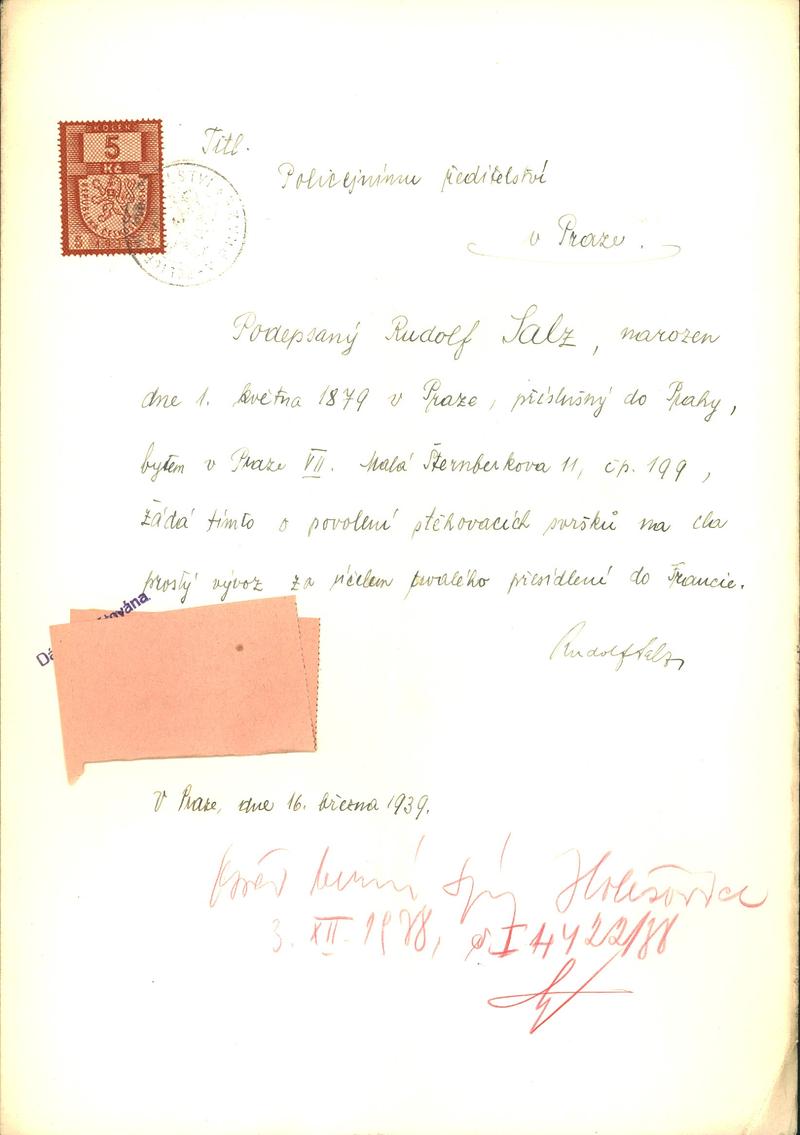 KOLEK
5
Kč
Titl.
Policejnímu ředitelství
v Praze.
Podepsaný Rudolf Salz, narozen
dne 1. května 1879 v Praze, příslušný do Prahy,
bytem v Praze VII. Malá Šternberkova 11, čp. 199,
žádá tímto o povolení stěhovacích svršků na cla
prostý vývoz za účelem trvalého přesídlení do Francie.
Rudolf Salz
V Praze, dne 16. března 1939.
Holešovice
3. XII. 1938, I 4422/38